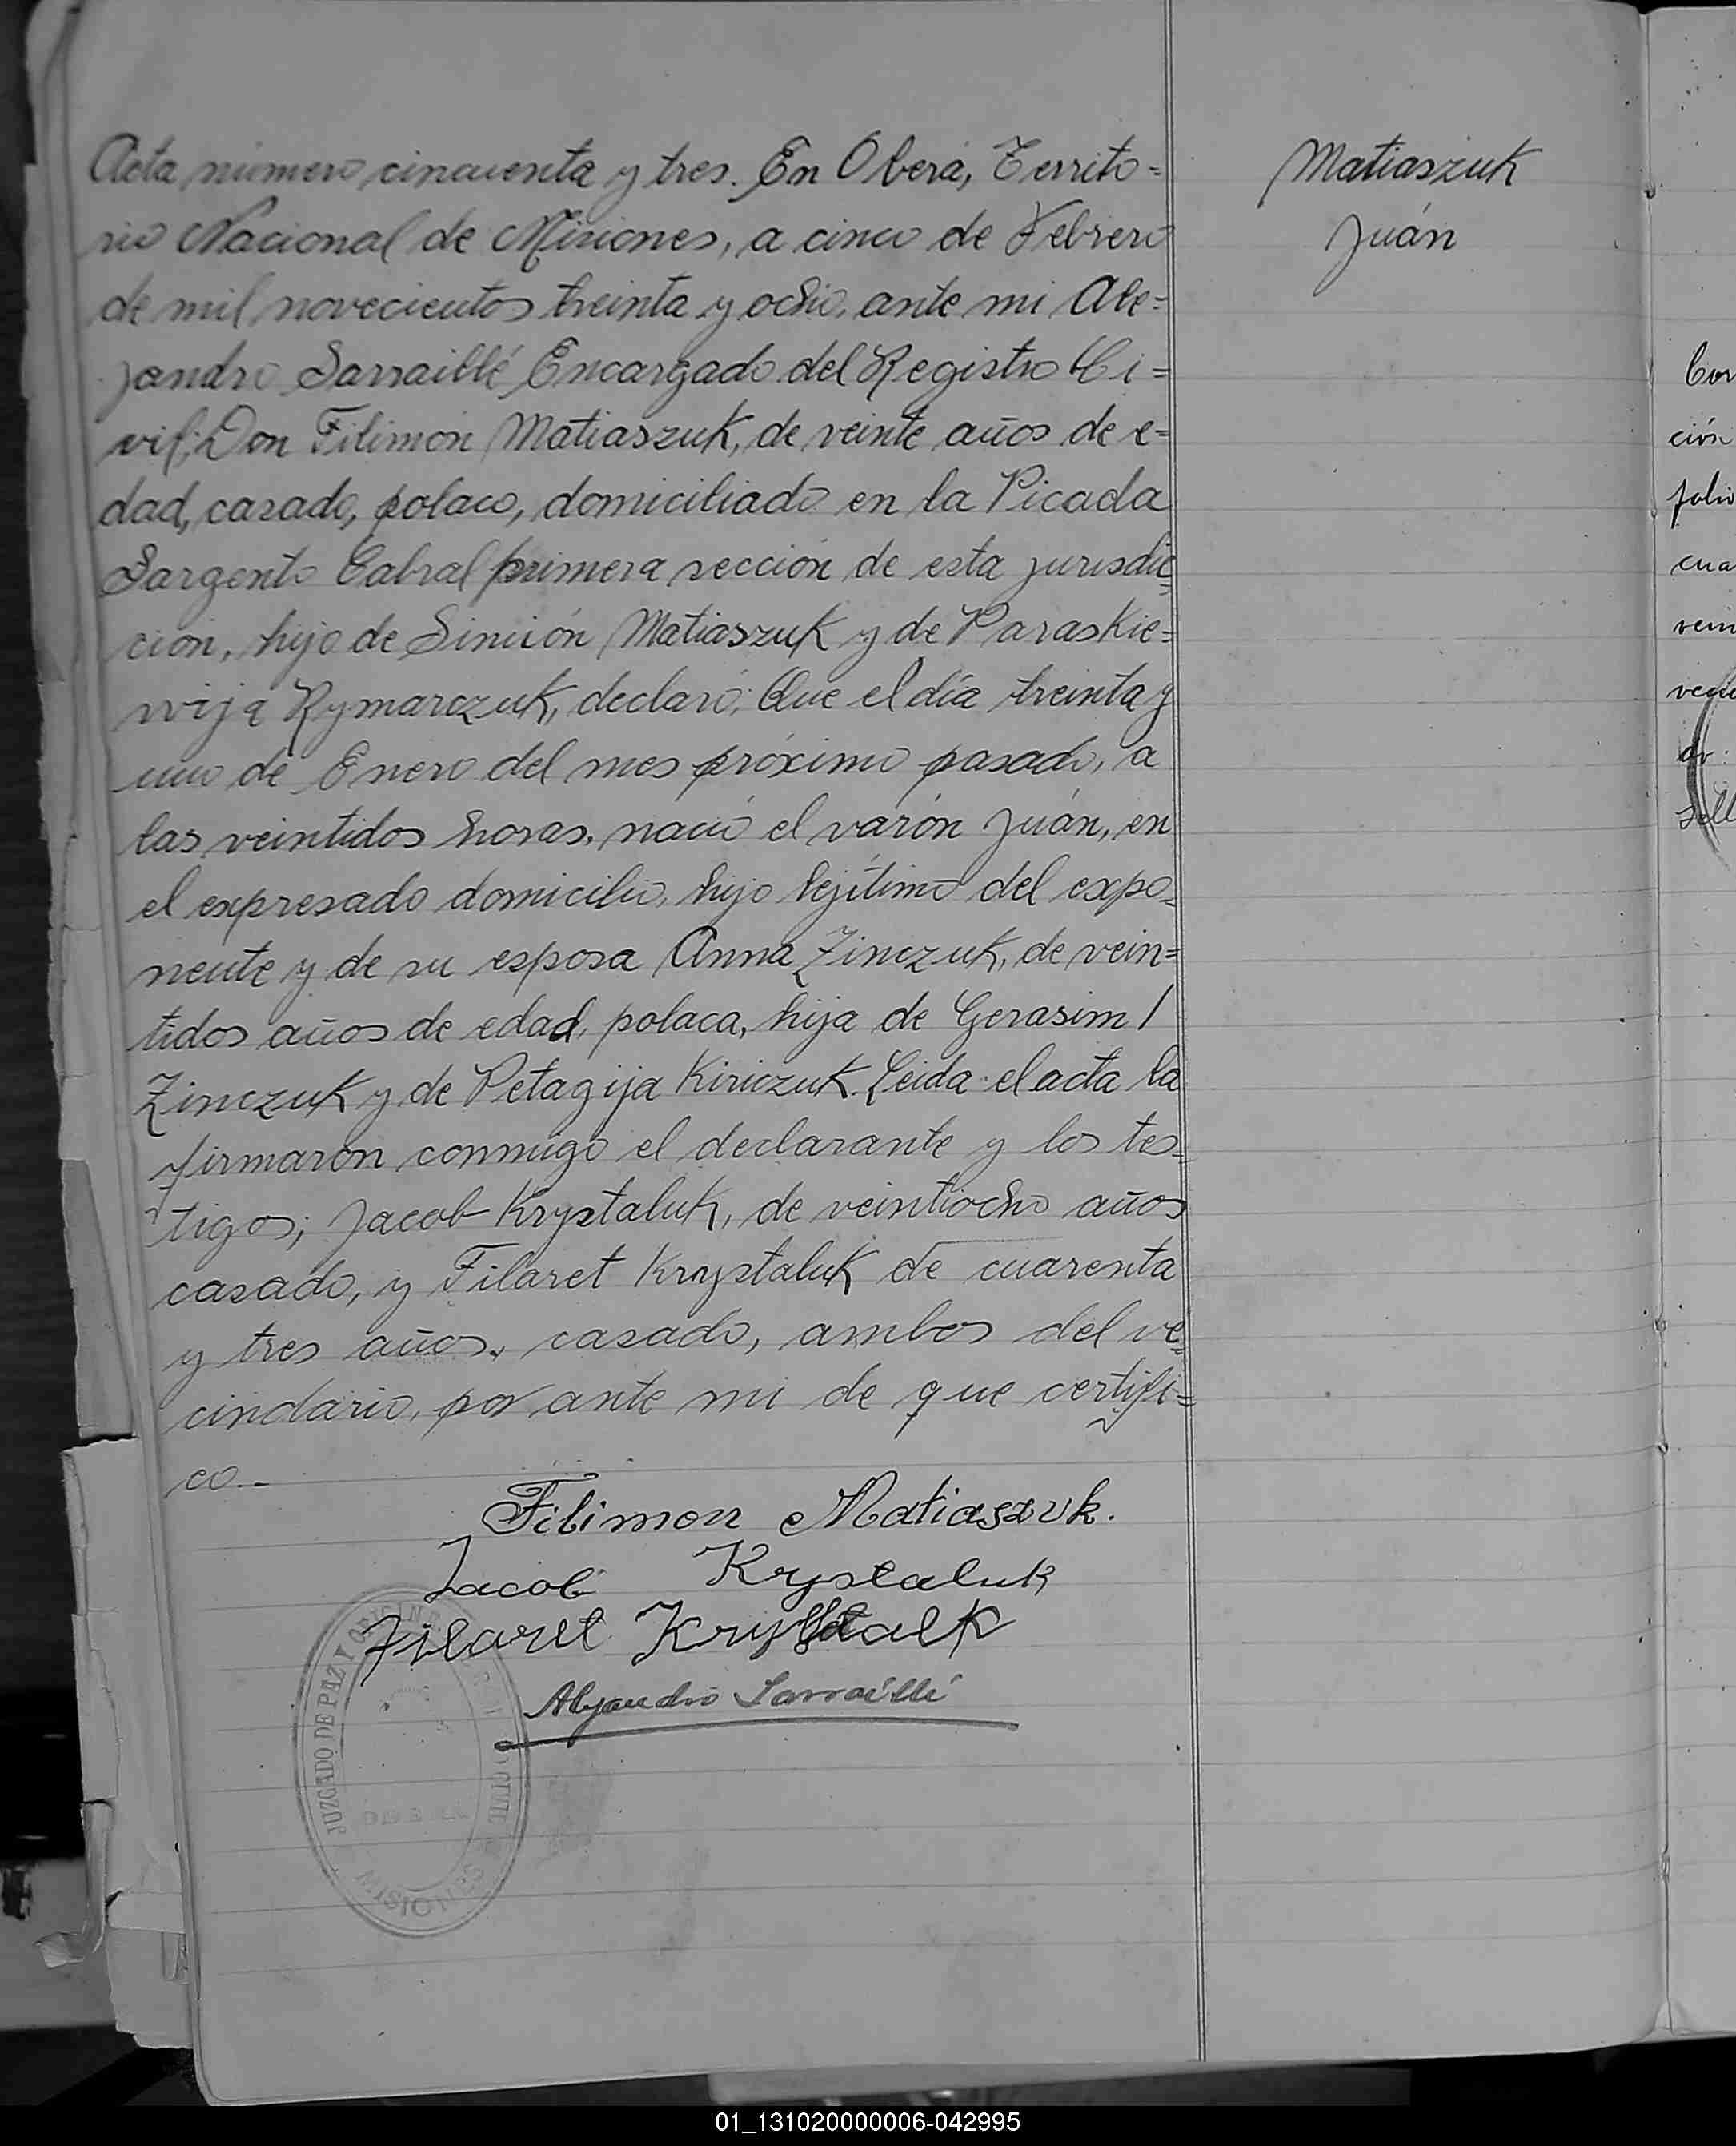 Acta número cincuenta y tres. En Oberá, Territo=
rio Nacional de Misiones, a cinco de Febrero
de mil novecientos treinta y ocho, ante mi Ale=
jandro Sarraillé Encargado del Registro Ci=
vil; Don Filimón Matiaszuk, de veinte años de e=
dad, casado, polaco, domiciliado en la Picada
Sargento Cabral primera sección de esta jurisdic=
ción, hijo de Simión Matiaszuk y de Paraskie=
wija Rymarczuk, declaró: Que el día treinta y
uno de Enero del mes próximo pasado, a
las veintidos horas, nació el varón Juán, en
el expresado domicilio, hijo lejítimo del expo=
nente y de su esposa Anna Zinczuk, de vein=
tidos años de edad, polaca, hija de Gerasim /
Zinczuk y de Petagija Kiriczuk. Leida el acta la
firmaron conmigo el declarante y los tes=
tigos; Jacob Krystaluk, de veintiocho años
casado, y Filaret Krystaluk de cuarenta
y tres años, casado, ambos del ve=
cindario, por ante mi de que certifi=
co.-
Filimon Matiaszuk.
Jacob Krystaluk
Filaret
Alejandro Sarraillé
JUZGADO DE PAZ Y
CIVIL
MISIONES
Matiaszuk
Juán
ción
folio
cua
01_131020000006-042995